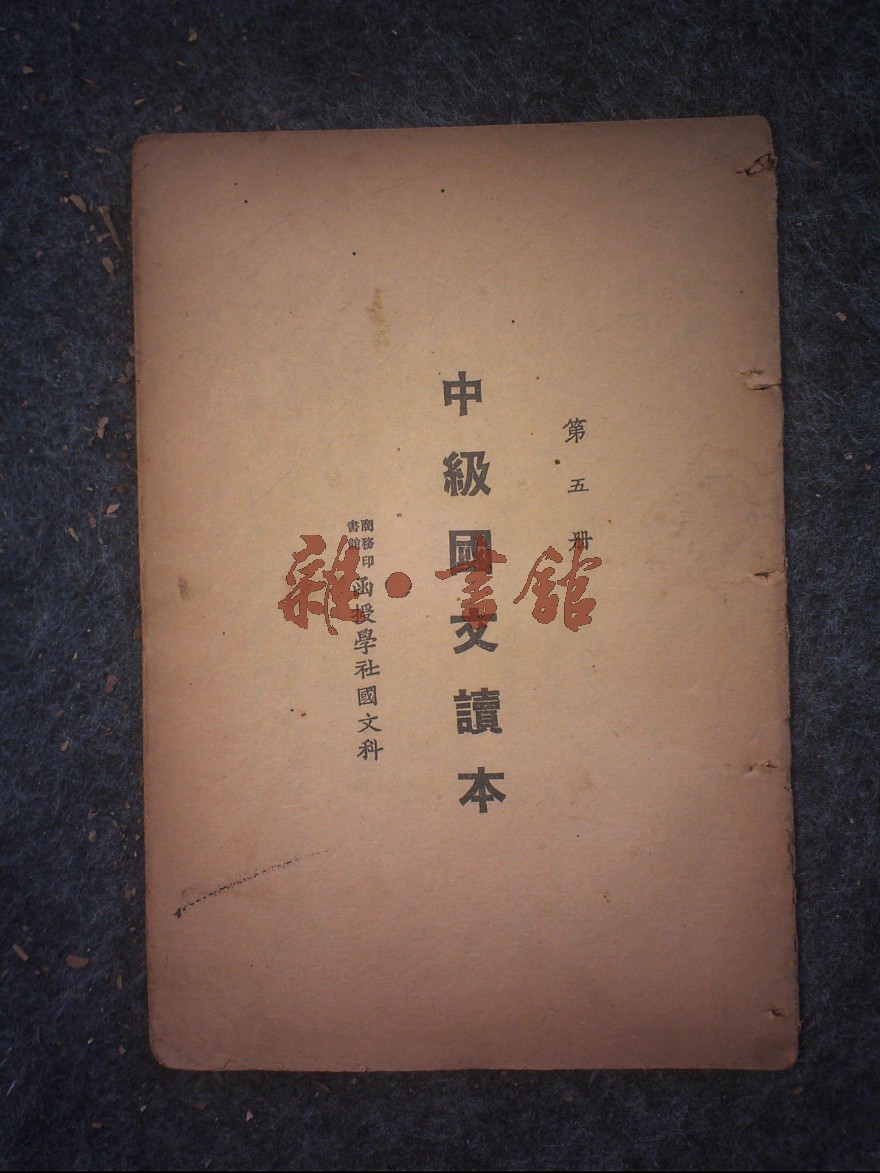 第五册
中級國文讀本
商務印書館函授學社國文科
雜·書館